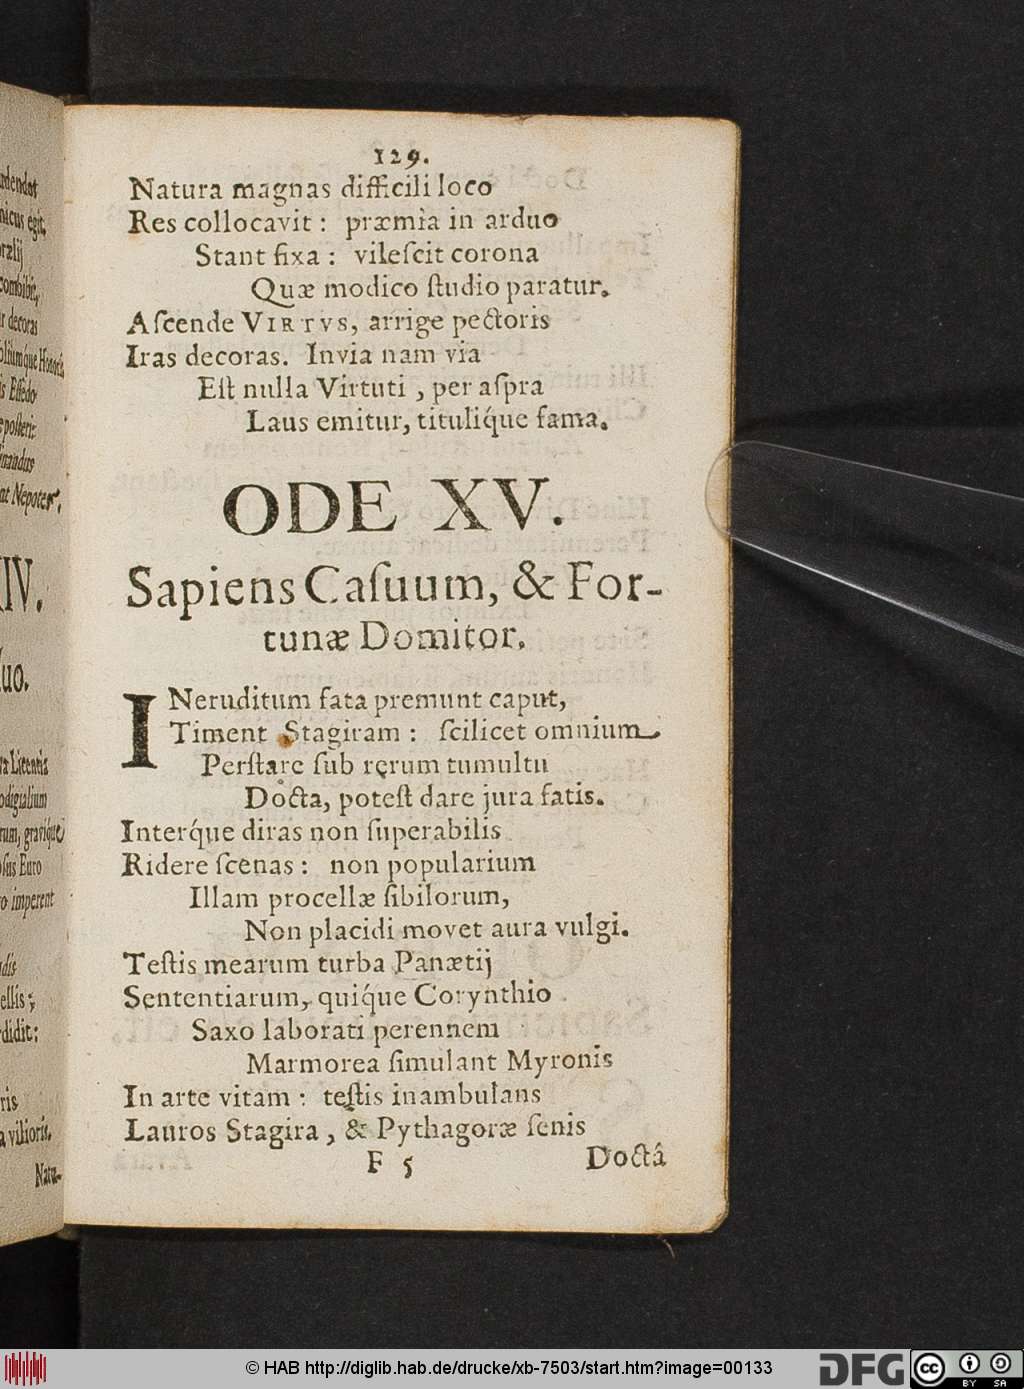 129.
Natura magnas difficili loco
Res collocavit : præmia in arduo
Stant fixa : vileſcit corona
Quæ modico ſtudio paratur.
Aſcende VIRTVS, arrige pectoris
Iras decoras. Invia nam via
Eſt nulla Virtuti , per aſpra
Laus emitur, titulíque fama.
ODE XV.
Sapiens Caſuum, & For-
tunæ Domitor.
INeruditum fata premunt caput,
Timent Stagiram : ſcilicet omnium
Perſtare ſub rerum tumultu
Docta, poteſt dare jura fatis.
Interq́ue diras non ſuperabilis
Ridere ſcenas : non popularium
Illam procellæ ſibilorum,
Non placidi movet aura vulgi.
Teſtis mearum turba Panætij
Sententiarum, quiq́ue Corynthio
Saxo laborati perennem
Marmorea ſimulant Myronis
In arte vitam : teſtis inambulans
Lauros Stagira , & Pythagoræ ſenis
F 5
Doctâ
nicus egit,
combibit,
decoras
Nepotes.
XIV.
Licentia
odigialium
Euro
imperent
didit:
vilioris.
Natu-
© HAB http://diglib.hab.de/drucke/xb-7503/start.htm?image=00133
DFG
cc
BY SA